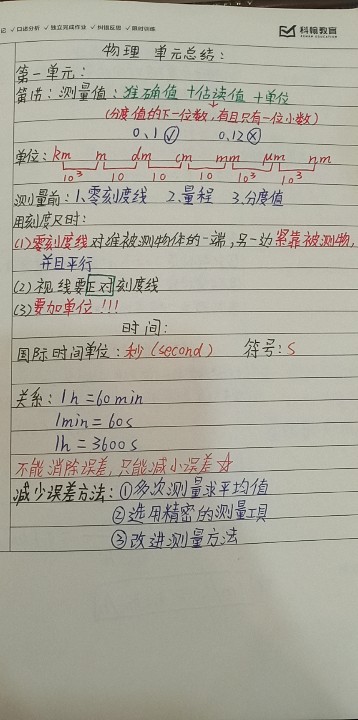 记 ✓口述分析 ✓独立完成作业 ✓纠错反思 ✓限时训练
科翰教育
物理 单元总结:
第一单元:
测量值:准确值+估读值+单位
(分度值的下一位数,有且只有一位小数)
0.1 ✓ 0.12 ×
单位: km m dm cm mm μm nm
10³ 10 10 10 10³ 10³
测量前: 1.零刻度线 2.量程 3.分度值
用刻度尺时:
(1)零刻度线对准被测物体的一端,另一边紧靠被测物,
并且平行
(2)视线要正对刻度线
(3)要加单位!!!
时间:
国际时间单位:秒(second) 符号:s
关系: 1h=60min
1min=60s
1h=3600s
不能消除误差,只能减小误差☆
减少误差方法:①多次测量求平均值
②选用精密的测量工具
③改进测量方法